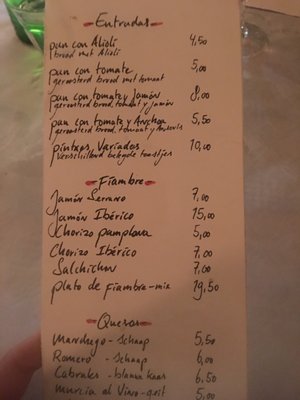 Entradas
pan con Alioli 4,50
brood met Alioli
pan con tomate 5,00
geroosterd brood met tomaat
pan con tomate y Jamón 8,00
geroosterd brood, tomaat y jamón
pan con tomate y Anchoa 5,50
geroosterd brood, tomaat y Ansovis
pintxos Variados 10,00
verschillend belegde toastjes
Fiambre
Jamón Serrano 7,00
Jamón Ibérico 15,00
Chorizo pamplona 5,00
Chorizo Ibérico 7,00
Salchichon 7,00
plato de fiambre-mix 19,50
Quesos
Manchego - Schaap 5,50
Romero - Schaap 6,00
Cabrales - blauwe kaas 6,50
Murcia al Vino - geit 5,00